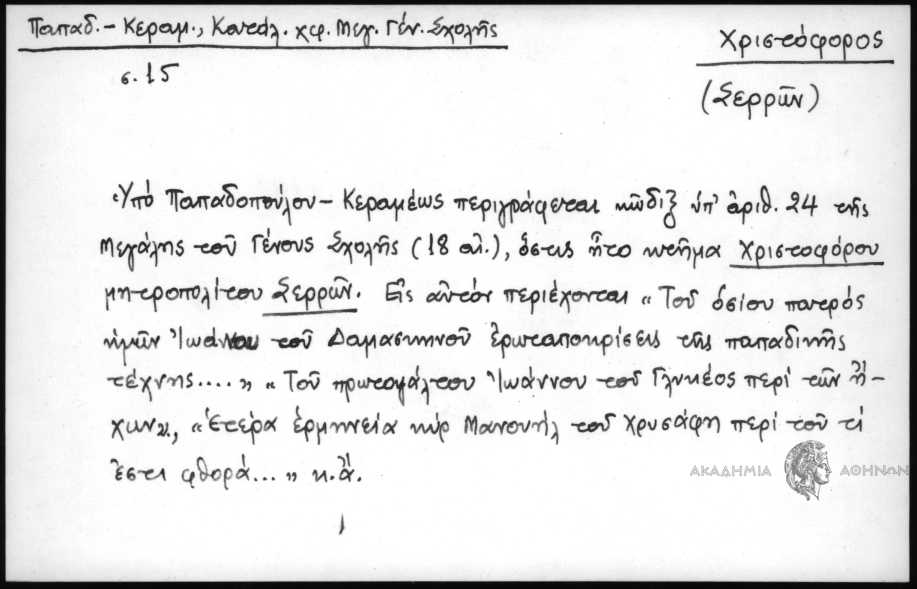 Παπαδ. - Κεραμ., Κατάλ. χφ. Μεγ. Γέν. Σχολῆς
σ. 15
Χριστόφορος
(Σερρῶν)
Ὑπό Παπαδοπούλου - Κεραμέως περιγράφεται κῶδιξ ὑπ' ἀριθ. 24 τῆς
Μεγάλης τοῦ Γένους Σχολῆς (18 αἰ.), ὅστις ἦτο κτῆμα Χριστοφόρου
μητροπολίτου Σερρῶν. Εἰς αὐτόν περιέχονται " Τοῦ ὁσίου πατρός
ἡμῶν Ἰωάννου τοῦ Δαμασκηνοῦ ἐρωταποκρίσεις τῆς παπαδικῆς
τέχνης.... " " Τοῦ πρωτοψάλτου Ἰωάννου τοῦ Γλυκέος περί τῶν ἤ-
χων", "ἑτέρα ἑρμηνεία κύρ Μανουήλ τοῦ Χρυσάφη περί τοῦ τί
ἐστι φθορά... " κ.ἄ.
ΑΚΑΔΗΜΙΑ ΑΘΗΝΩΝ